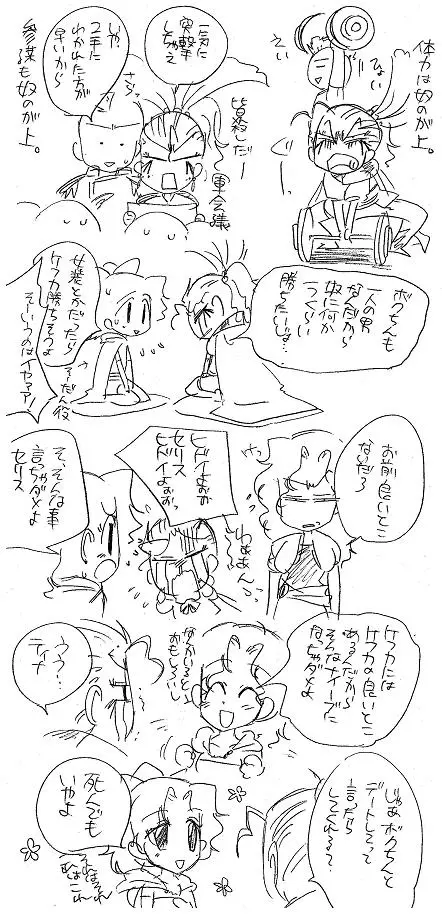 体力は奴のが上。
えい
ひょい
ぐっ
一気に
突撃
しちゃえ
皆殺しだー
軍会議
いや
2手に
わかれた方が
早いから
さらっ
参謀も奴のが上。
ボクちんも
一人の男
なんだから
奴に何か
1つくらい
勝ちたいよ…
女装とかだったら
ケフカ勝ちそうよ
そういうのはイヤァァ!
そうだん役
お前良いとこ
ないだろ
ヒドイよぉぉ
セリス
ヒドイよぉぉっ
わぁぁん
そ、そんな事
言っちゃダメよ
セリス
ケフカには
ケフカの良いとこ
あるんだから
そんなナイーブに
なっちゃダメよ
なんかいると
おもしろいし
ううう…
ティナ…
じゃあボクちんと
デートしろって
言ったら
してくれる?…
死んでも
いやよ
それはそれ
これはこれ